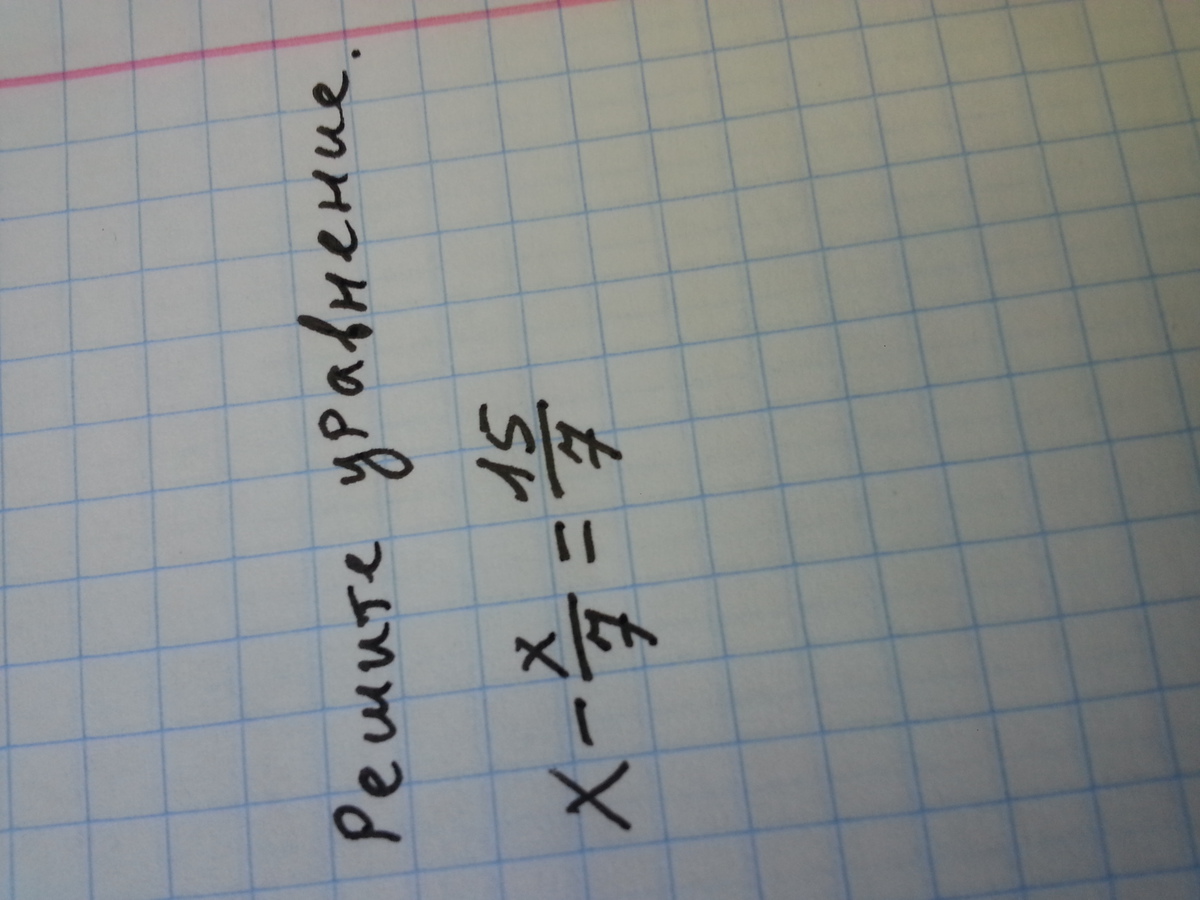 Решите уравнение.
x - x/7 = 15/7